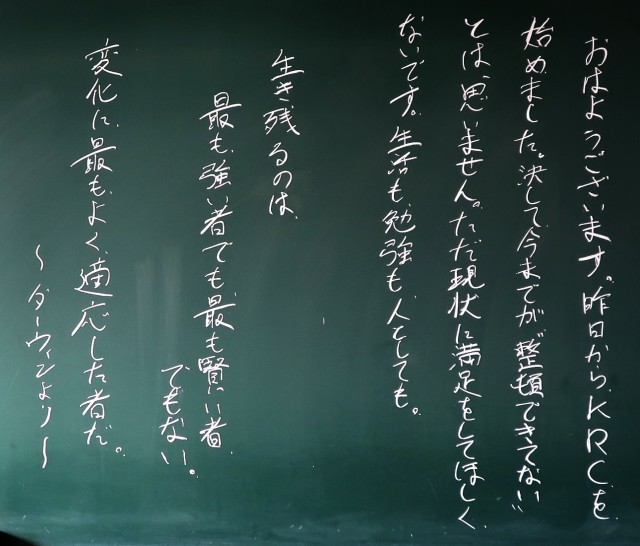 おはようございます。昨日から、KRCを
始めました。決して今までが〝整頓できてない〟
とは、思いません。ただ現状に満足をしてほしく
ないです。生活も、勉強も、人としても。
生き残るのは、
最も、強い者でも、最も賢い者、
でもない。
変化に、最もよく、適応した者だ。
～ダーウィンより～